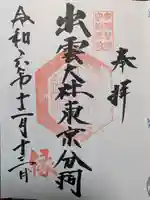 奉拝
出雲大社東京分祠
令和六年十二月十三日
縁